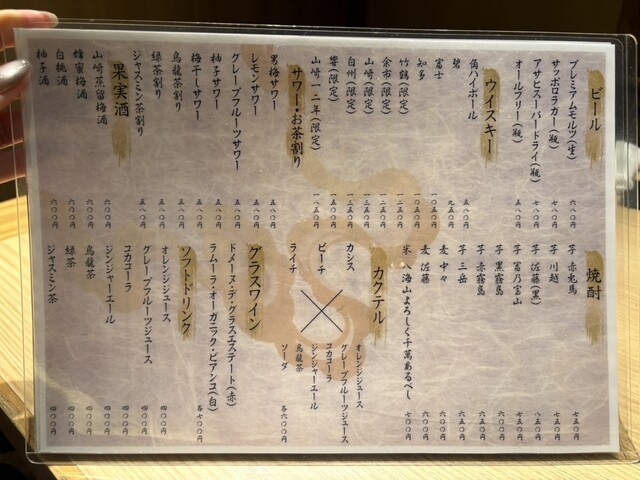 ビール
プレミアムモルツ(生) 六八〇円
サッポロラガー(瓶) 七八〇円
アサヒスーパードライ(瓶) 七八〇円
オールフリー(瓶) 五八〇円
ウイスキー
角ハイボール 五八〇円
碧 九五〇円
富士 一〇五〇円
知多 一〇五〇円
竹鶴(限定) 一二五〇円
余市(限定)
山崎(限定)
白州(限定)
響(限定)
山崎一二年(限定) 一八五〇円
サワー・お茶割り
男梅サワー 五八〇円
レモンサワー 五八〇円
グレープフルーツサワー 五八〇円
柚子サワー 五八〇円
梅干しサワー 五八〇円
烏龍茶割り 五八〇円
緑茶割り 五八〇円
ジャスミン茶割り 五八〇円
果実酒
山崎蒸留梅酒 六〇〇円
蜂蜜梅酒 六〇〇円
白桃酒 六〇〇円
柚子酒 六〇〇円
焼酎
芋 赤兎馬 七五〇円
芋 川越 七五〇円
芋 佐藤(黒) 八五〇円
芋 冨乃宝山 七五〇円
芋 黒霧島 六〇〇円
芋 赤霧島 六〇〇円
芋 三岳 六五〇円
麦 中々 六〇〇円
麦 佐藤 六〇〇円
米 八海山よろしく千萬あるべし 七〇〇円
カクテル
カシス
ピーチ
ライチ
×
オレンジジュース
グレープフルーツジュース
コカコーラ
ジンジャーエール
烏龍茶
ソーダ
各六〇〇円
グラスワイン
ドメーヌ・デ・グラスエステート(赤)
ラムーラ・オーガニック・ビアンコ(白)
各七〇〇円
ソフトドリンク
オレンジジュース 四〇〇円
グレープフルーツジュース 四〇〇円
コカコーラ 四〇〇円
ジンジャーエール 四〇〇円
烏龍茶 四〇〇円
緑茶 四〇〇円
ジャスミン茶 四〇〇円